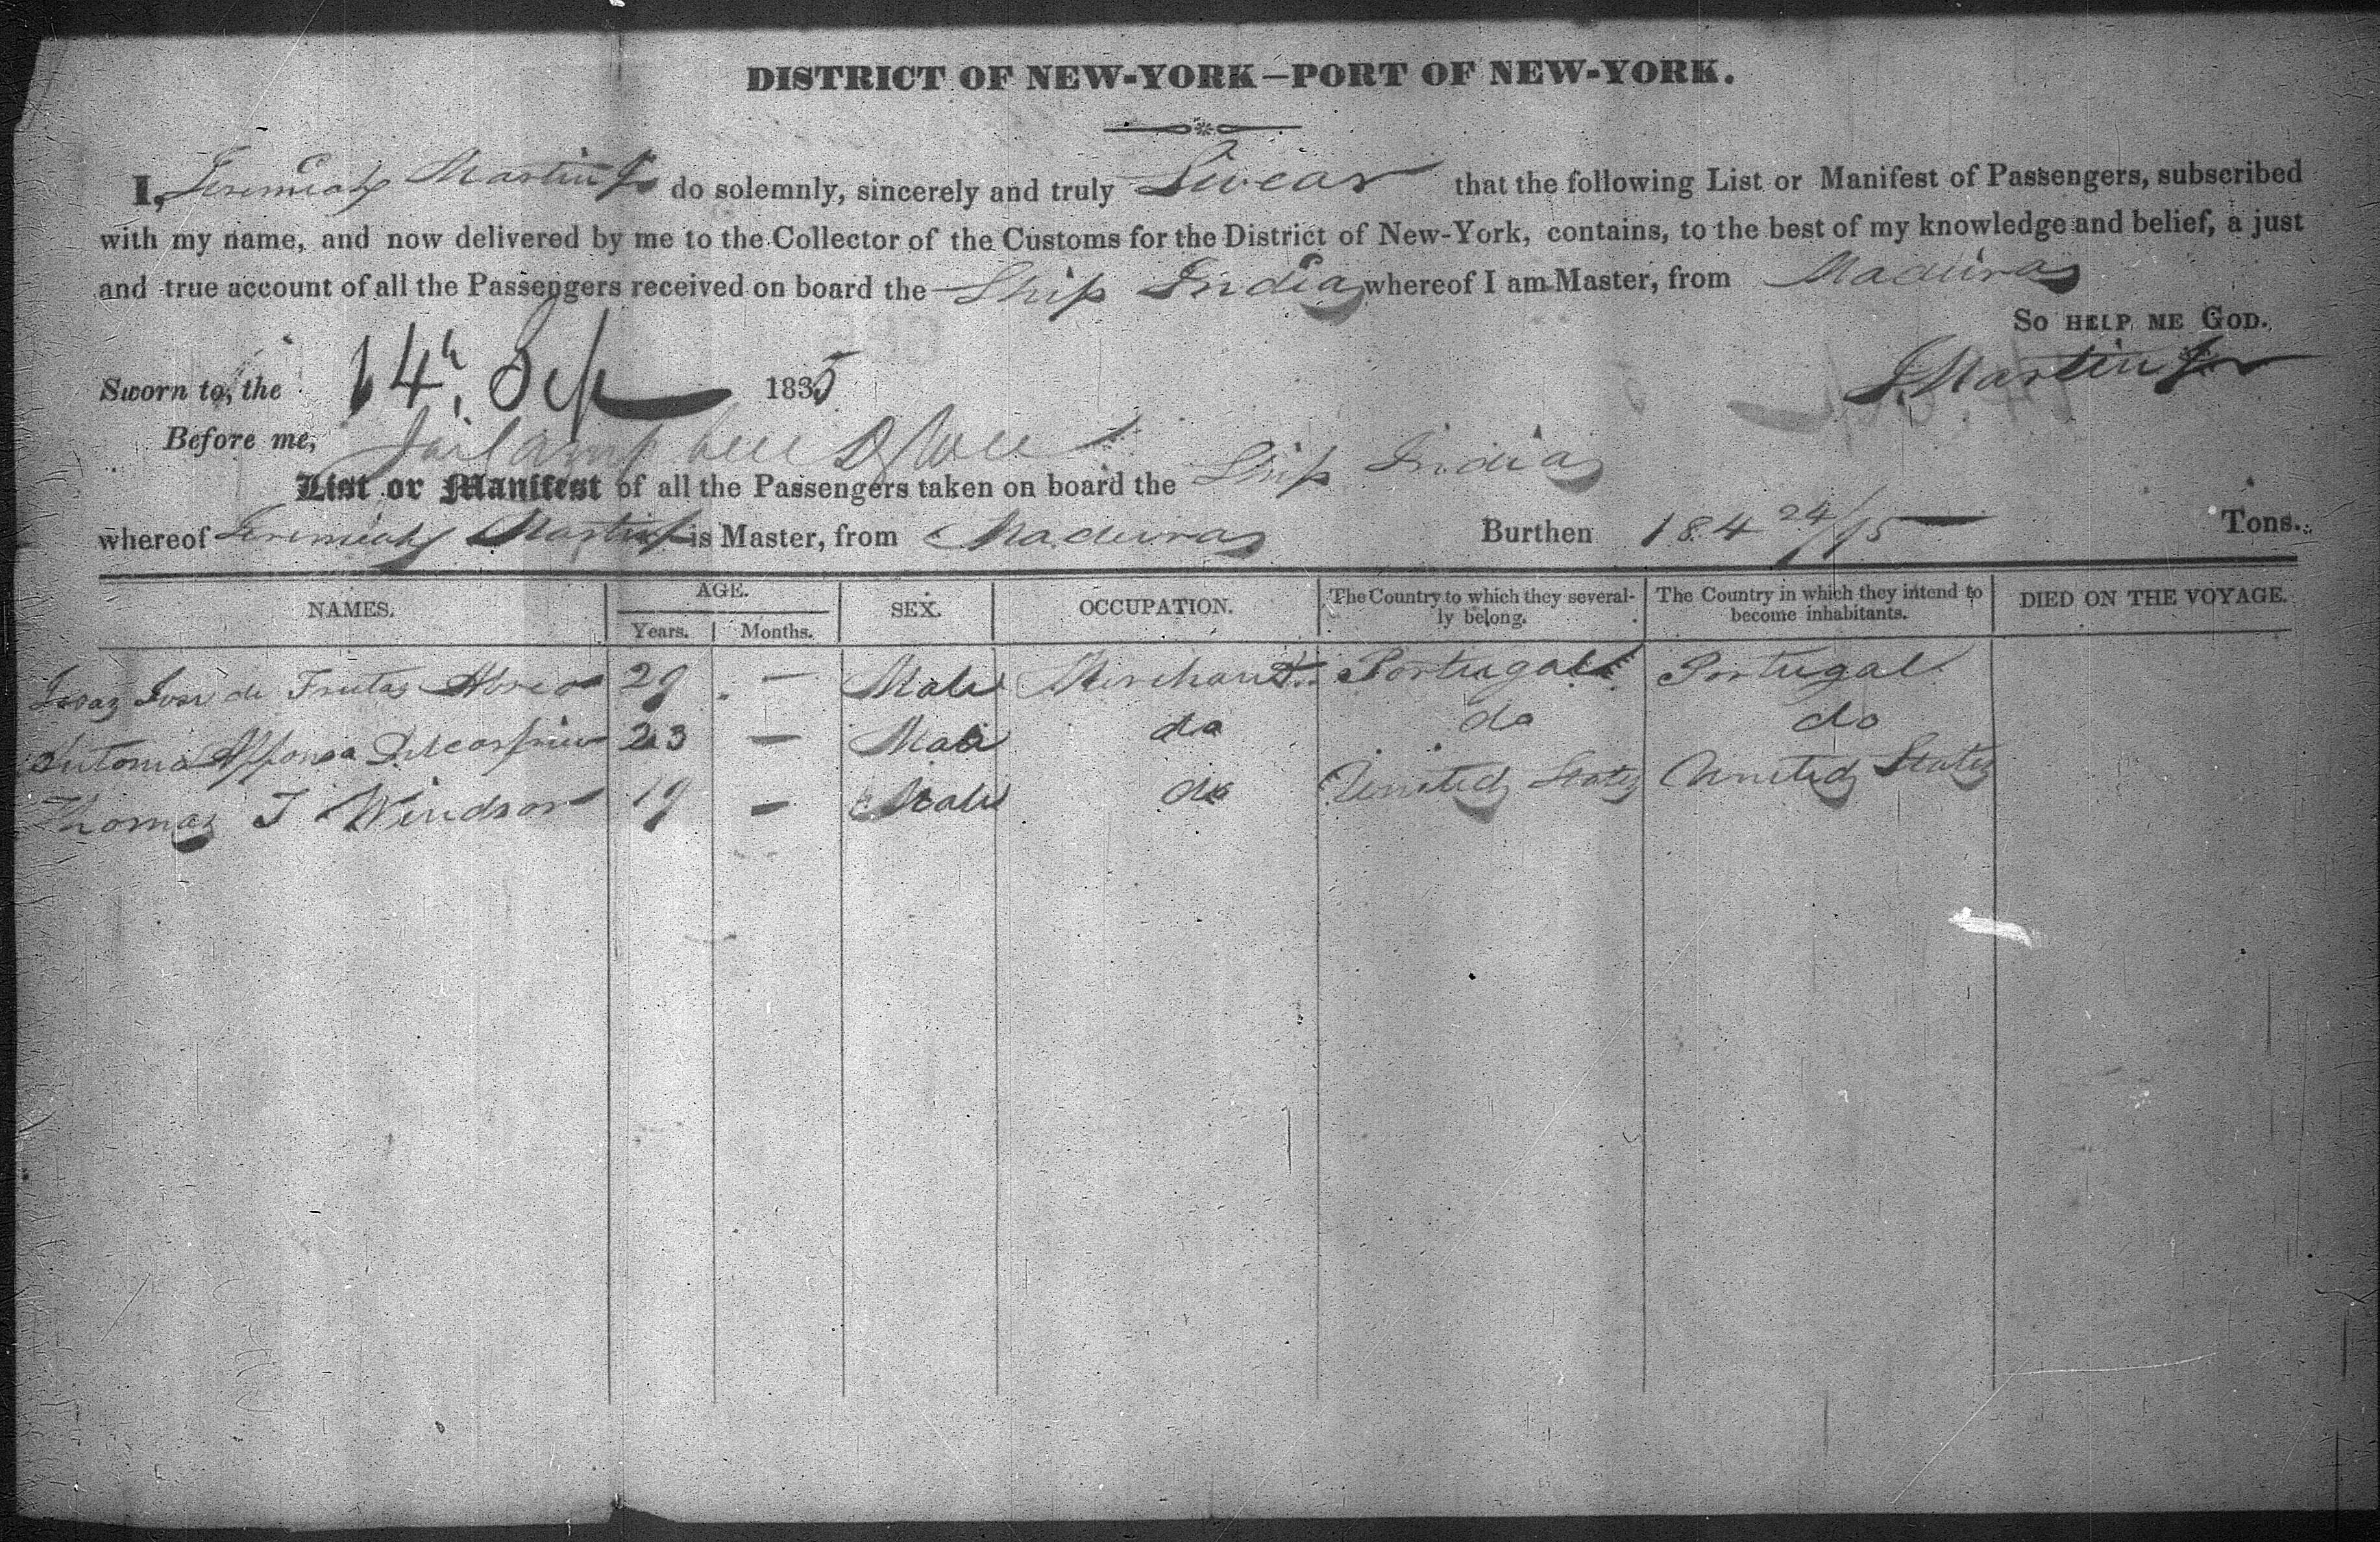 DISTRICT OF NEW-YORK—PORT OF NEW-YORK.
I, Jeremiah Martin Jr do solemnly, sincerely and truly Swear that the following List or Manifest of Passengers, subscribed
with my name, and now delivered by me to the Collector of the Customs for the District of New-York, contains, to the best of my knowledge and belief, a just
and true account of all the Passengers received on board the Ship India whereof I am Master, from Madeira
So HELP ME GOD.
Sworn to, the 14h, Sep 1835
J Martin Jr
Before me,
List or Manifest of all the Passengers taken on board the Ship India
whereof Jeremiah Martin Jr is Master, from Madeira Burthen 184 Tons.
NAMES. AGE. SEX. OCCUPATION. The Country to which they severally belong. The Country in which they intend to become inhabitants. DIED ON THE VOYAGE.
Years. Months.
Jose de Freitas Abreo 29 — Male Merchant Portugal Portugal
Antonio 23 — Male do do do
Thomas J Windsor 19 — Male do United States United States